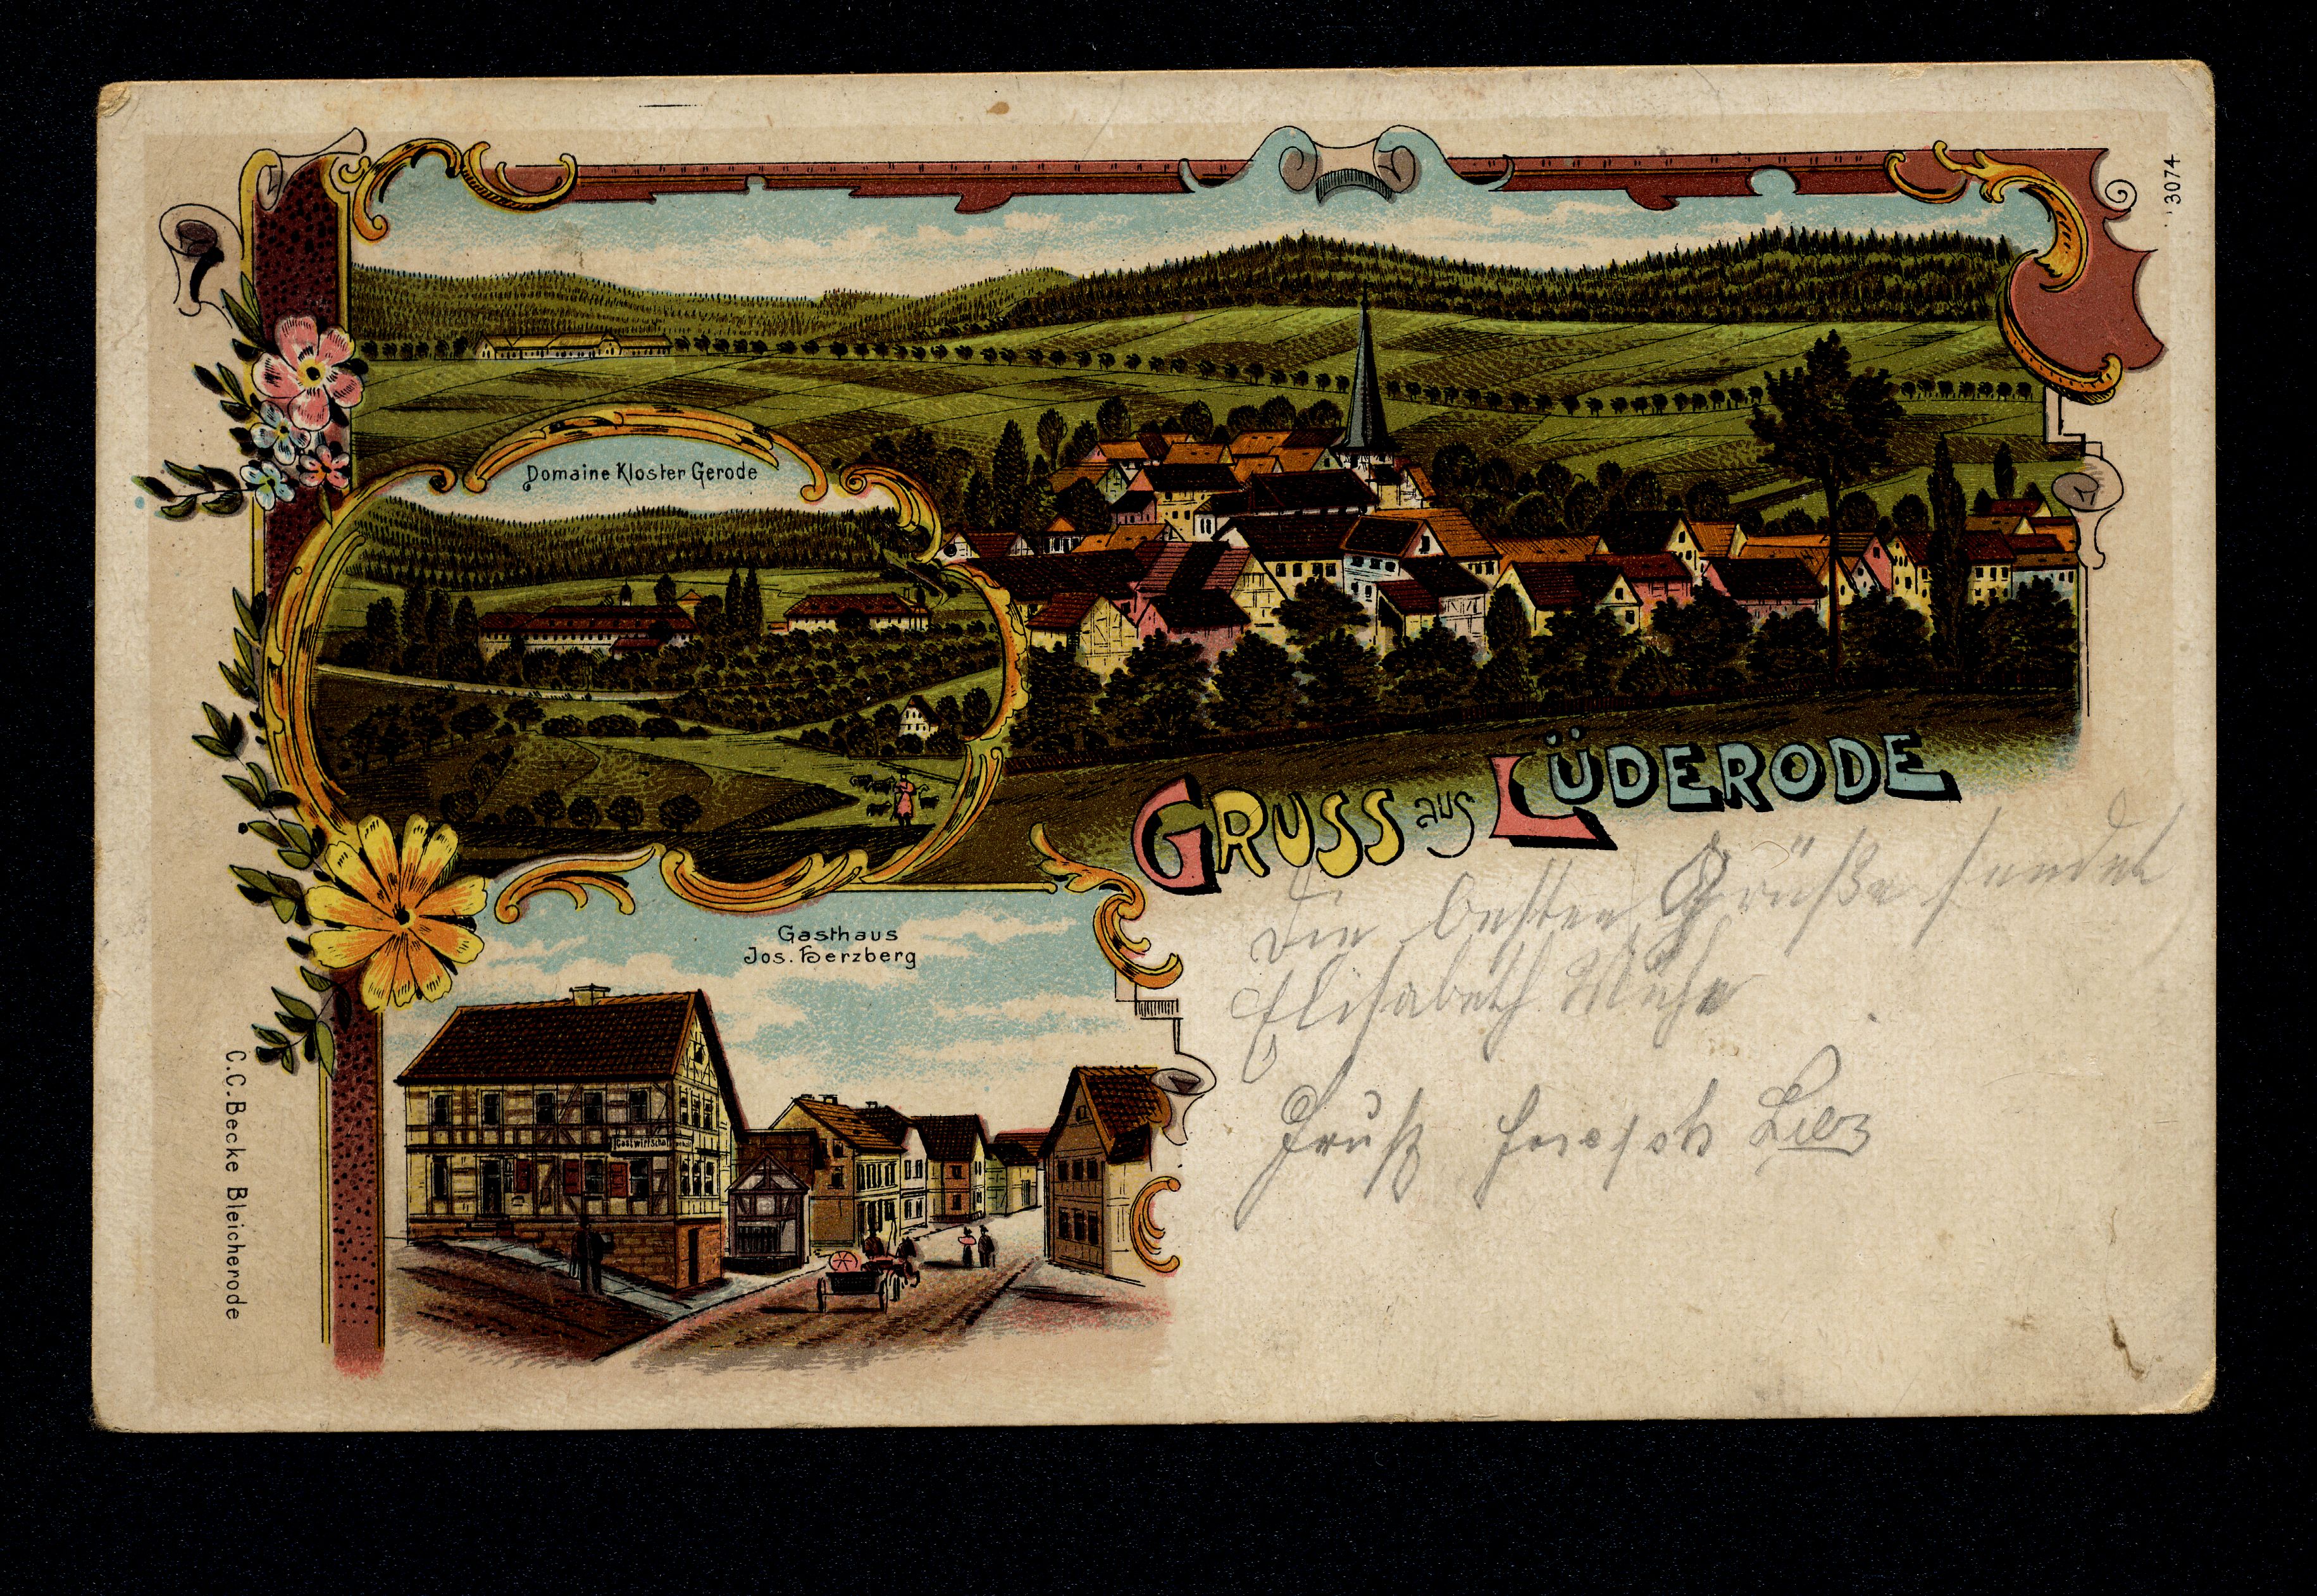 3074
Domaine Kloster Gerode
GRUSS aus LÜDERODE
Die besten Grüße sendet
Elisabeth
Gasthaus
Jos. Herzberg
Gruß Joseph
Gastwirtschaft
C.C. Becke Bleicherode